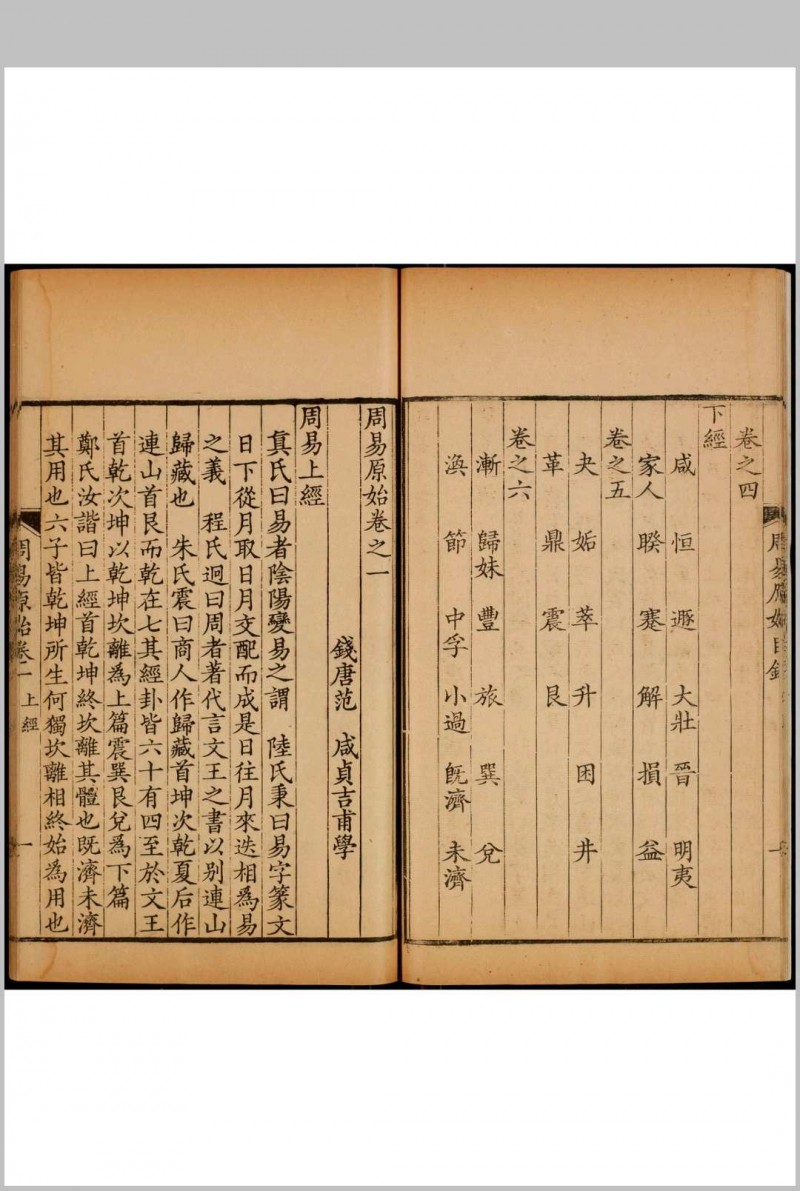 周易原始目錄
卷之四
下經
咸 恒 遯 大壯 晉 明夷
家人 睽 蹇 解 損 益
卷之五
夬 姤 萃 升 困 井
革 鼎 震 艮
卷之六
漸 歸妹 豐 旅 巽 兌
渙 節 中孚 小過 既濟 未濟
周易原始卷之一
錢唐范 咸貞吉甫學
周易上經
真氏曰易者陰陽變易之謂 陸氏秉曰易字篆文
日下從月取日月交配而成是日往月來迭相為易
之義 程氏迥曰周者著代言文王之書以別連山
歸藏也 朱氏震曰商人作歸藏首坤次乾夏后作
連山首艮而乾在七其經卦皆六十有四至於文王
首乾次坤以乾坤坎離為上篇震巽艮兌為下篇
鄭氏汝諧曰上經首乾坤終坎離其體也既濟未濟
其用也六子皆乾坤所生何獨坎離相終始為用也
周易原始卷一 上經 一